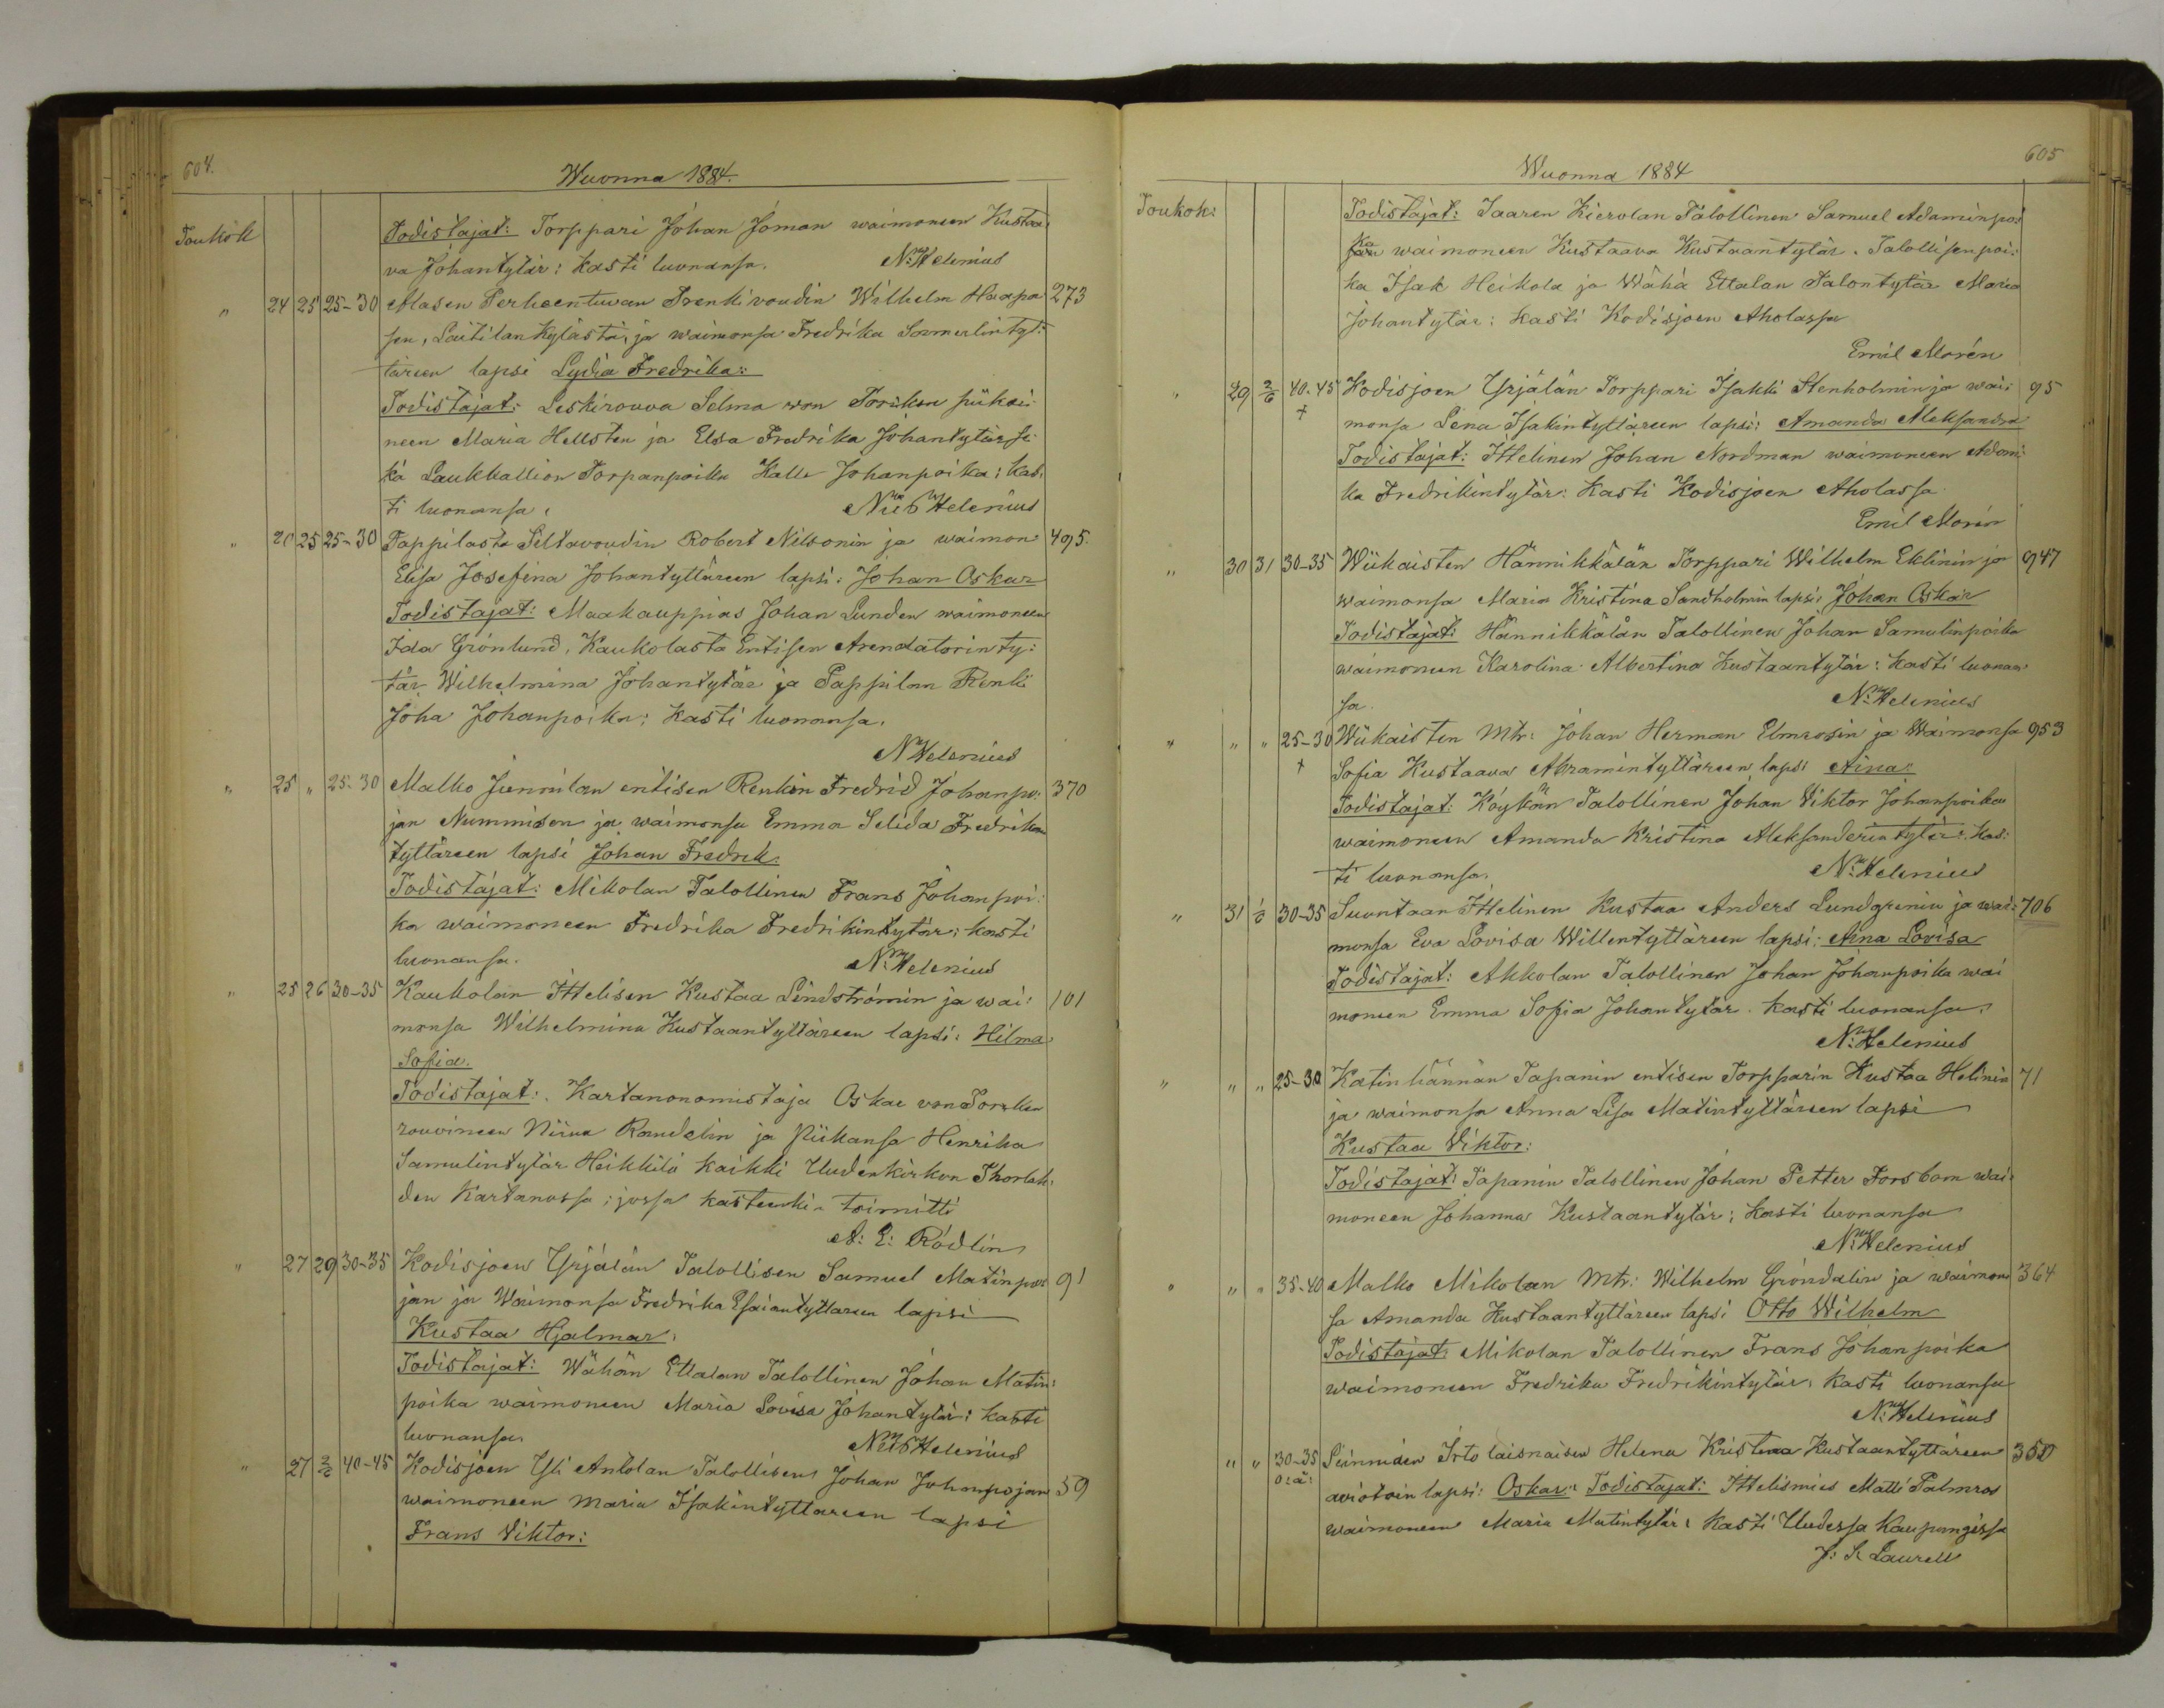 604.
Wuonna 1884.
Toukok
Todistajat: Torppari Johan Joman waimoneen Kustaa-
va Johantytär: kasti luonansa. N: Helenius
" 24 25 25-30 Masen Perheentuwan Frenkivoudin Wilhelm Haapa 273
sen, Laitilan Kylästä, ja waimonsa Fredrika Somerlintyt:
täreen lapsi Lydia Fredrika:
Todistajat: Leskirouva Selma von Torcken piikoi-
neen Maria Hellsten ja Elsa Fredrika Johantytär se-
kä Laukkallion Torpanpoika Kalle Johanpoika: kas-
ti luonansa. Nils Helenius
" 20 25 25-30 Pappilasta Siltavoudin Robert Nilsonin ja waimon 495.
Elisa Josefina Johantyttäreen lapsi: Johan Oskar
Todistajat: Maakauppias Johan Lunden waimoneen
Ida Grönlund, Kaukolasta Entisen Arendatorin ty:
tär Wilhelmina Johantytär ja Pappilan Renki
Joha Johanpoika: kasti luonansa.
N Helenius
" 25 " 25-30 Malko Junnilan entisen Renkin Fredrid Johanpo: 370
jan Nummisen ja waimonsa Emma Selida Fredrikin
tyttäreen lapsi Johan Fredrik.
Todistajat: Mikolan Talollinen Frans Johanpoi-
ka waimoneen Fredrika Fredrikintytär: kasti
luonansa. N: Helenius
" 25 26 30-35 Kaukolan Ittelisen Kustaa Lindströmin ja wai: 101
monsa Wilhelmina Kustaantyttäreen lapsi: Hilma
Sofia.
Todistajat: Kartanonomistaja Oskar von Torcken
rouvineen Niina Randelin ja Piikansa Henrika
Samulintytär Heikkilä kaikki Uudenkirkon Thorlah:
den Kartanossa; jossa kasteenki toimitti
A: E: Rödlin
" 27 29 30-35 Kodisjoen Yrjälän Talollisen Samuel Matinpoi 91
jan ja Waimonsa Fredrika Esaiantyttäreen lapsi
Kustaa Hjalmar.
Todistajat: Wähän Ettalan Talollinen Johan Matin:
poika waimoneen Maria Lovisa Johantytär: kasti
luonansa. Nils Helenius
" 27 2/6 40-45 Kodisjoen Yli Antolan Talollisen Johan Johanpojan 59
waimoneen Maria Isakintyttäreen lapsi
Frans Viktor:
605
Wuonna 1884
Toukok:
Todistajat: Saaren Kierolan Talollinen Samuel Adaminpoi
ka waimoneen Kustaava Kustaantytär. Talollisenpoi:
ka Isak Heikola ja Wähä Ettalan Talontytär Maria
Johantytär: kasti Kodisjoen Aholassa
Emil Morén
" 29 2/6 40-45 Kodisjoen Yrjälän Torppari Isakki Stenholmin ja wai: 95
+ monsa Lena Isakintyttäreen lapsi: Amanda Aleksandra
Todistajat: Ittelinen Johan Nordman waimoneen Adami
ka Fredrikintytär: kasti Kodisjoen Aholassa
Emil Morén
" 30 31 30-35 Wiikaisten Hännikkälän Torppari Wilhelm Eklinin ja 947
waimonsa Maria Kristina Sandholmin lapsi: Johan Oskar
Todistajat: Hännikkälän Talollinen Johan Samulinpoika
waimoneen Karolina Albertina Kustaantytär: kasti luonan-
sa. N: Helenius
" " " 25-30 Wiikaisten Mtr: Johan Herman Elmrosin ja Waimonsa 953
+ Sofia Kustaava Abramintyttäreen lapsi Aina:
Todistajat: Köykän Talollinen Johan Viktor Johanpoika
waimoneen Amanda Kristina Aleksanderintytär: kas:
ti luonansa. N: Helenius
" 31 1/6 30-35 Suontaan Ittelinen Kustaa Anders Lundgrenin ja wai: 706
monsa Eva Lovisa Willentyttäreen lapsi: Aina Lovisa
Todistajat: Akkolan Talollinen Johan Johanpoika wai
moneen Emma Sofia Johantytär. kasti luonansa.
N: Helenius
" " " 25-30 Katinhännän Tapanin entisen Torpparin Kustaa Helinin 71
ja waimonsa Anna Lisa Matintyttäreen lapsi
Kustaa Viktor:
Todistajat: Tapanin Talollinen Johan Petter Forsbom wai-
moneen Johanna Kustaantytär: kasti luonansa
N: Helenius
" " " 35-40 Malko Mikolan Mtr: Wilhelm Gröndalin ja waimon 364
sa Amanda Kustaantyttäreen lapsi Otto Wilhelm
Todistajat: Mikolan Talollinen Frans Johanpoika
waimoneen Fredrika Fredrikintytär: kasti luonansa
N: Helenius
" " 30-35 Irtolaisnaisen Helena Kristina Kustaantyttäreen 350
o: ä: aviotoin lapsi: Oskar: Todistajat: Ittelismies Matti Palmros
waimoneen Maria Matintytär: kasti Uudessa Kaupungissa
J: S. Laurell